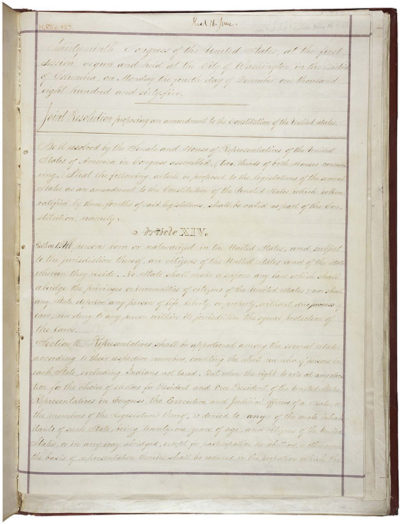 Thirty-ninth Congress of the United States, at the first
session, begun and held at the City of Washington, in the District
of Columbia, on Monday the fourth day of December, one thousand
eight hundred and sixty-five.
Joint Resolution proposing an amendment to the Constitution of the United States.
Be it resolved by the Senate and House of Representatives of the United
States of America in Congress assembled, (two thirds of both Houses concur-
ring,) That the following article be proposed to the legislatures of the several
States as an amendment to the Constitution of the United States, which, when
ratified by three fourths of said legislatures, shall be valid as part of the Con-
stitution, namely:
Article XIV.
Section 1. All persons born or naturalized in the United States, and subject
to the jurisdiction thereof, are citizens of the United States and of the State
wherein they reside. No State shall make or enforce any law which shall
abridge the privileges or immunities of citizens of the United States; nor shall
any State deprive any person of life, liberty, or property, without due process of
law; nor deny to any person within its jurisdiction the equal protection of
the laws.
Section 2. Representatives shall be apportioned among the several States
according to their respective numbers, counting the whole number of persons in
each State, excluding Indians not taxed. But when the right to vote at any elec-
tion for the choice of electors for President and Vice President of the United States,
Representatives in Congress, the Executive and Judicial officers of a State, or
the members of the Legislature thereof, is denied to any of the male inhab-
itants of such State, being twenty-one years of age, and citizens of the United
States, or in any way abridged, except for participation in rebellion, or other crime,
the basis of representation therein shall be reduced in the proportion which the